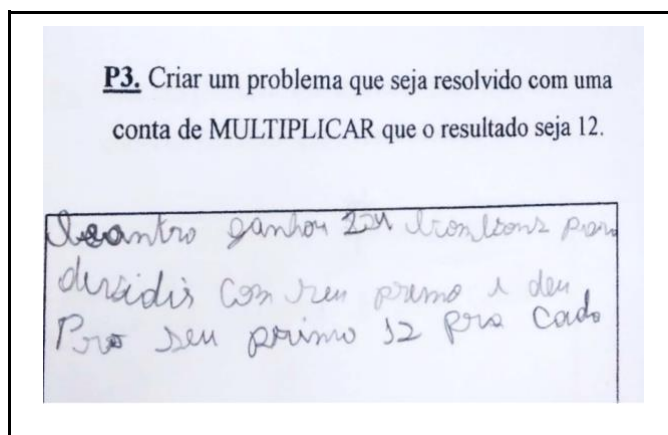 P3. Criar um problema que seja resolvido com uma
conta de MULTIPLICAR que o resultado seja 12.
Leantro ganhou bombons para
dividis com seu primo e deu
Pro seu primo 12 pra cada